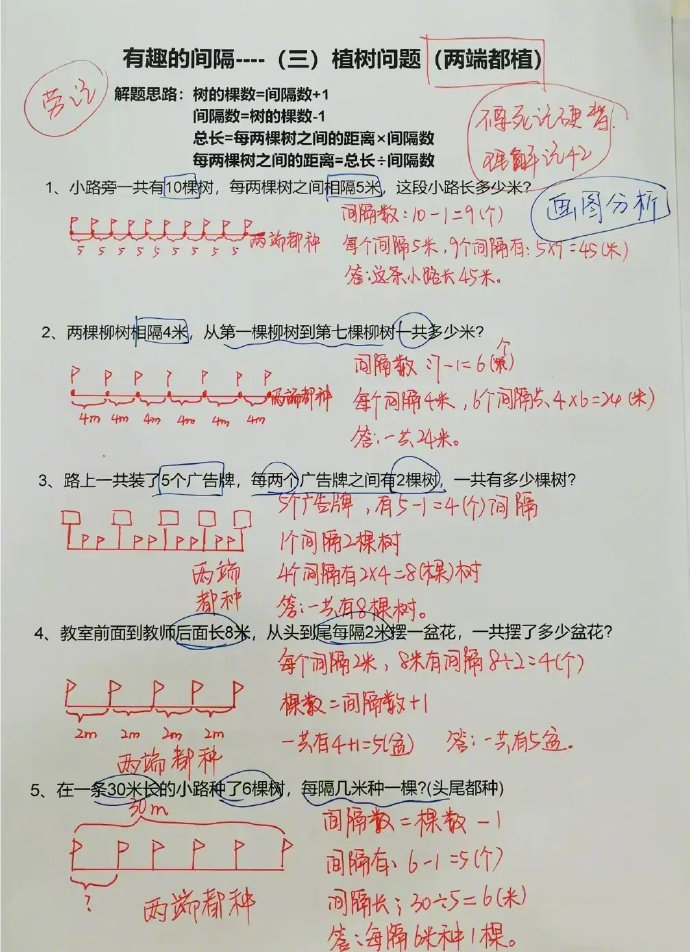 有趣的间隔----（三）植树问题（两端都植）
劳记
解题思路：树的棵数=间隔数+1
间隔数=树的棵数-1
总长=每两棵树之间的距离×间隔数
每两棵树之间的距离=总长÷间隔数
不要死记硬背！
理解记牢
1、小路旁一共有10棵树，每两棵树之间相隔5米，这段小路长多少米？
画图分析
间隔数：10-1=9(个)
5 5 5 5 5 5 5 5 5
两端都种
每个间隔5米，9个间隔有：5×9=45(米)
答：这条小路长45米。
2、两棵柳树相隔4米，从第一棵柳树到第七棵柳树一共多少米？
间隔数：7-1=6(个)
两端都种
4m 4m 4m 4m 4m 4m
每个间隔4米，6个间隔共4×6=24(米)
答：一共24米。
3、路上一共装了5个广告牌，每两个广告牌之间有2棵树，一共有多少棵树？
5个广告牌，有5-1=4(个)间隔
1个间隔2棵树
两端
都种
4个间隔有2×4=8(棵)树
答：一共有8棵树。
4、教室前面到教师后面长8米，从头到尾每隔2米摆一盆花，一共摆了多少盆花？
每个间隔2米，8米有间隔8÷2=4(个)
棵数=间隔数+1
2m 2m 2m 2m
两端都种
一共有4+1=5(盆) 答：一共有5盆。
5、在一条30米长的小路种了6棵树，每隔几米种一棵?(头尾都种)
30m
间隔数=棵数-1
间隔有：6-1=5(个)
?
两端都种
间隔长：30÷5=6(米)
答：每隔6米种1棵。